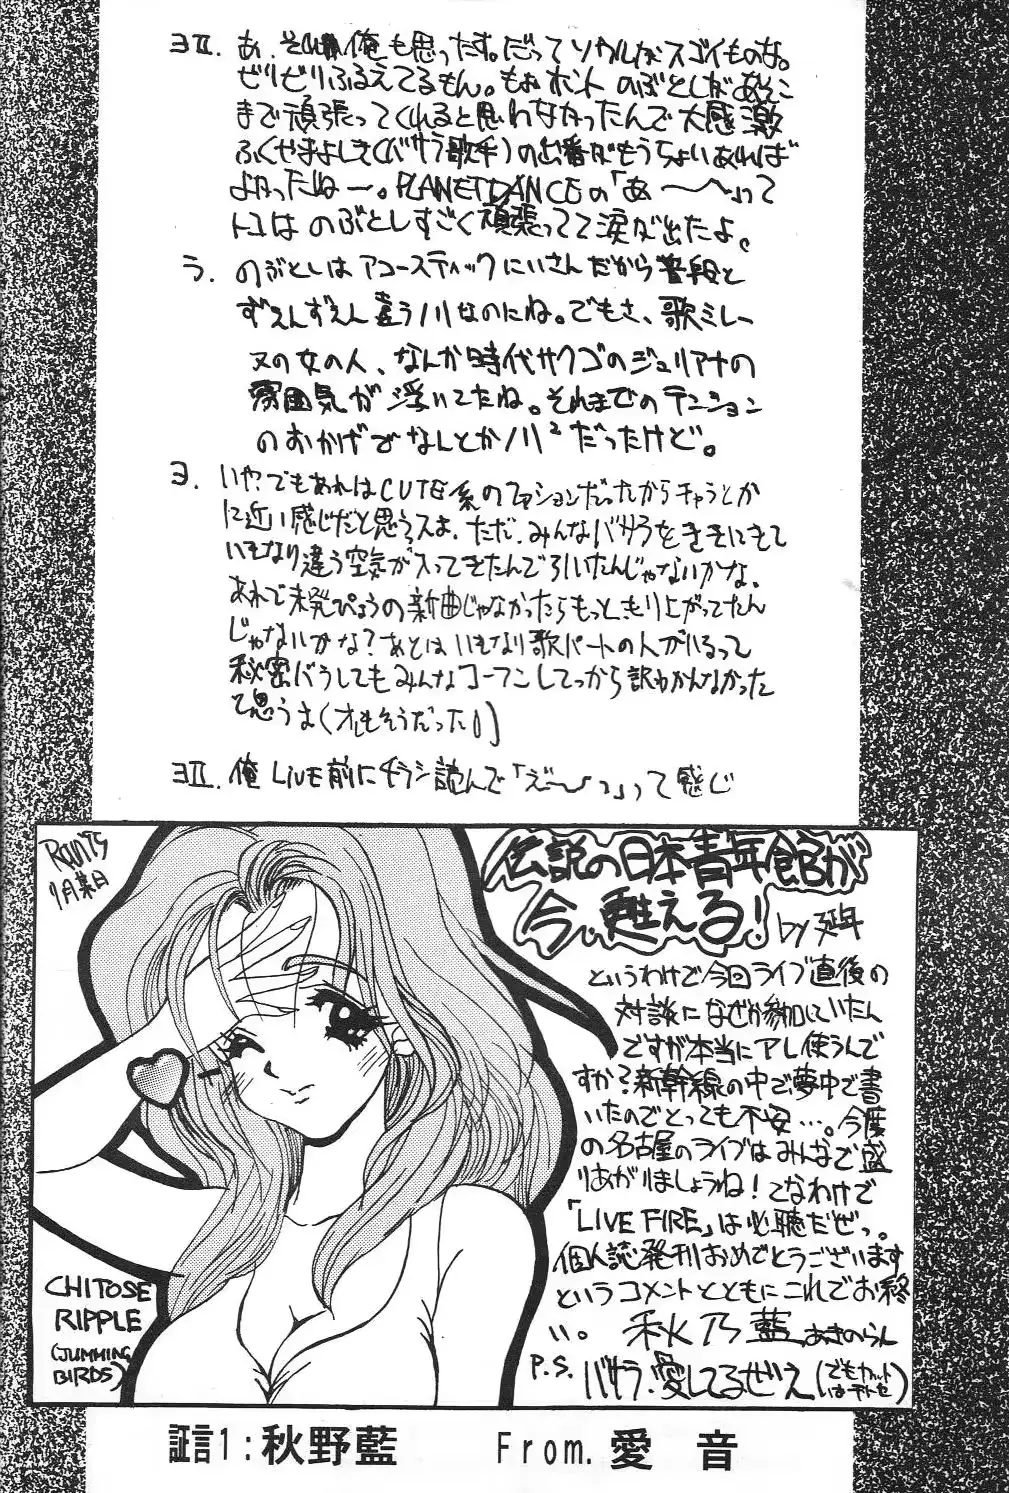 ヨII. あ、それは俺も思ったす。だってソウルがスゴイものな。
ビリビリふるえてるもん。もぉホント のぶとしがあそこ
まで頑張ってくれると思わなかったんで大感激
ふくやまよしき(バサラ歌手)の出番がもうちょいあれば
よかったねー。PLANET DANCEの「あ〜〜〜」って
トコは のぶとしすごく頑張ってて涙が出たよ。
う. のぶとしはアコースティックにいさんだから普段と
ずえんずえん違うノリなのにね。でもさ、歌ミレー
ヌの女の人、なんか時代サクゴのジュリアナの
雰囲気が浮いてたね。それまでのテンション
のおかげでなんとかノリ²だったけど。
ヨ. いや?でもあれはCUTE系のファションだったからキャラとか
に近い感じだと思うスよ。ただ、みんなバサラをききにきて
いきなり違う空気が入ってきたんで引いたんじゃないかな。
あれで未発ぴょうの新曲じゃなかったらもっともり上がってたん
じゃないかな?あとはいきなり歌パートの人がいるって
秘密バラしてもみんなコーフンしてっから訳わかんなかった
て思うよ(オレもそうだった!)
ヨII. 俺 LIVE前にチラシ読んで「え〜〜っ」って感じ
伝説の日本青年館が
今、甦える!
by 延年
というわけで今回ライブ直後の
対談になぜか参加していたん
ですが本当にアレ使うんで
すか?新幹線の中で夢中で書
いたのでとっても不安…。今度
の名古屋のライブはみんなで盛
りあがりましょうね!てなわけで
「LIVE FIRE」は必聴だぜっ。
個人誌発刊おめでとうございます
というコメントとともにこれでお終
い。 秋乃藍 あきのらん
P.S. バサラ、愛してるぜえ(でもカットはチトセ)
CHITOSE
RIPPLE
(JUMMING
BIRDS)
証言1:秋野藍 From.愛 音